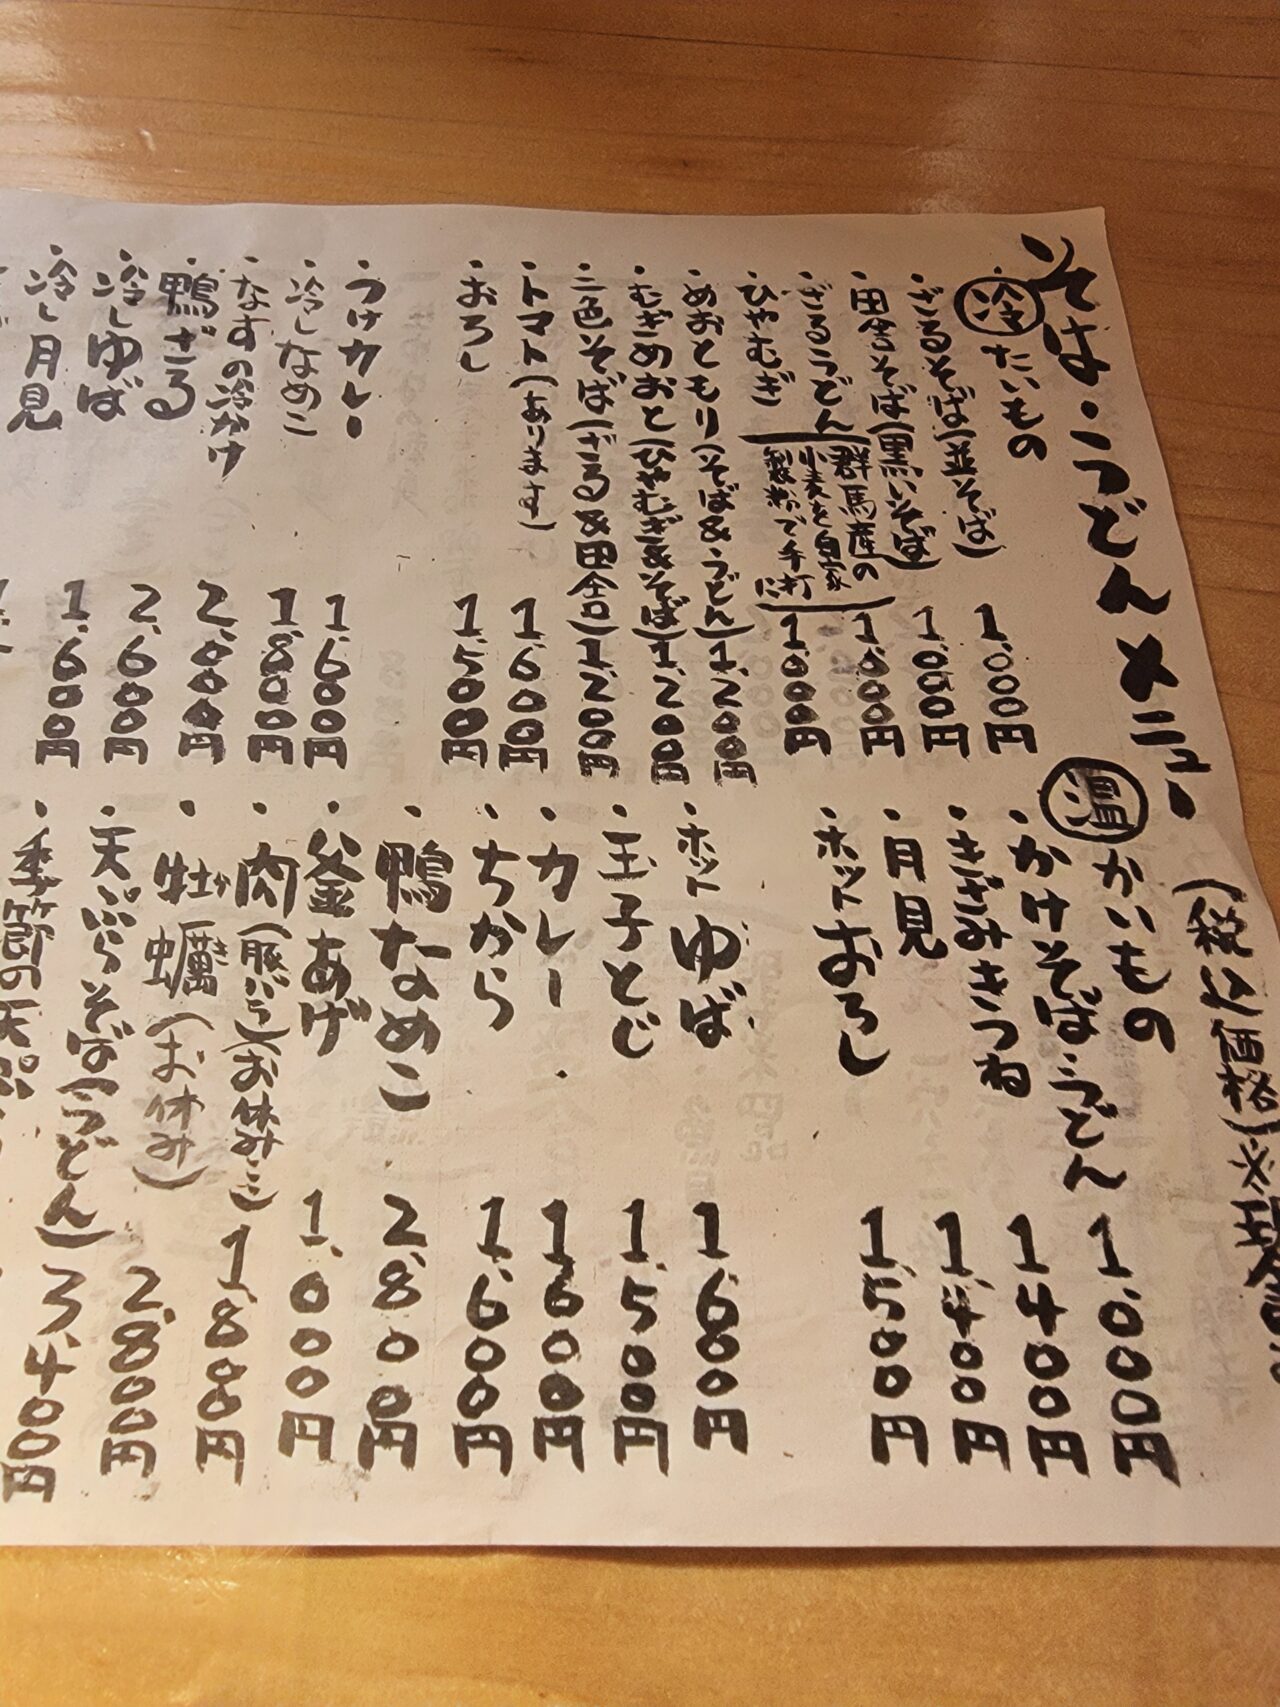 そば・うどんメニュー
(税込価格)(※
冷たいもの
・ざるそば(並そば) 1,000円
・田舎そば(黒いそば) 1,000円
・ざるうどん 1,000円
・ひやむぎ 1,000円
群馬産の
小麦を自家
製粉で手打に
・めおともり(そば&うどん) 1,200円
・むぎめおと(ひやむぎ&そば) 1,200円
・二色そば(ざる&田舎) 1,200円
・トマト(あります) 1,600円
・おろし 1,500円
・つけカレー 1,600円
・冷しなめこ 1,800円
・なすの冷かけ 2,000円
・鴨ざる 2,600円
・冷しゆば 1,600円
・冷し月見
温かいもの
・かけそば・うどん 1,000円
・きざみきつね 1,400円
・月見 1,400円
・ホットおろし 1,500円
・ホットゆば 1,600円
・玉子とじ 1,500円
・カレー 1,600円
・ちから 1,600円
・鴨なめこ 2,800円
・釜あげ 1,000円
・肉(豚バラ)(お休みミ) 1,800円
・牡蠣(お休み)
かき
・天ぷらそば(うどん) 2,800円
・季節の天ぷら 3,400円